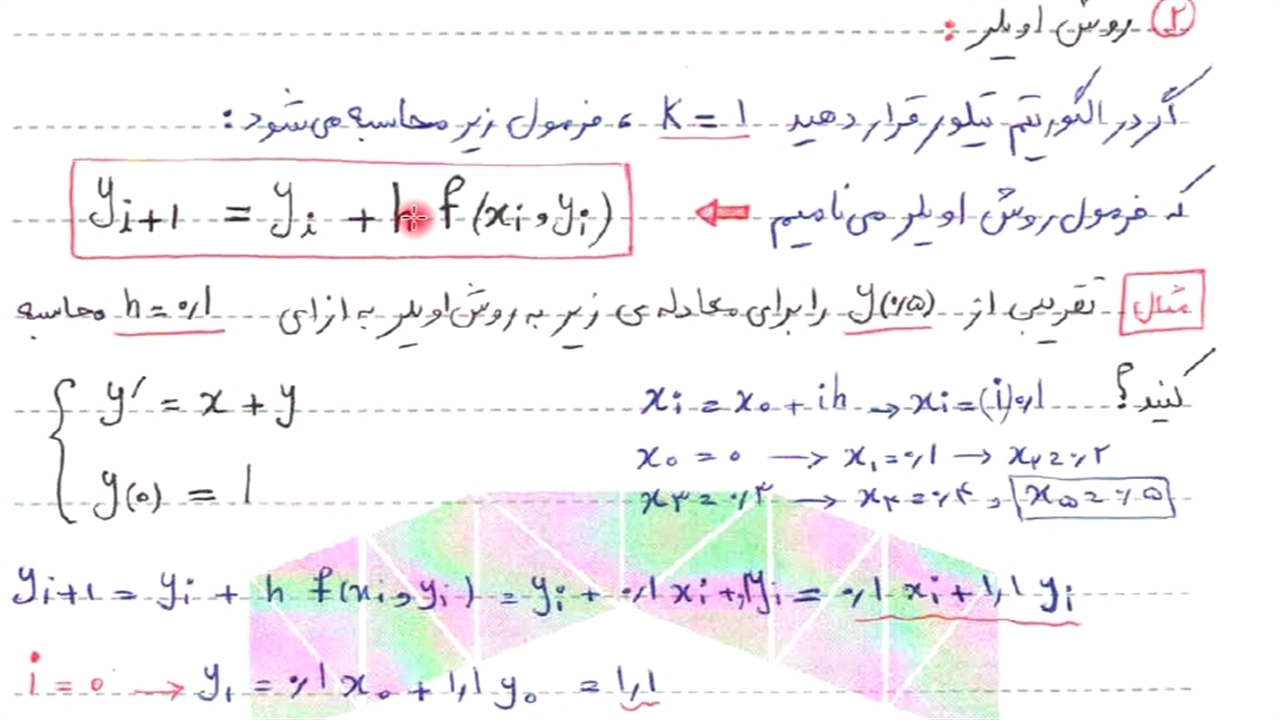 ۲ روش اویلر :
اگر در الگوریتم تیلور قرار دهید K = 1 ، فرمول زیر محاسبه می‌شود :
که فرمول روش اویلر می‌نامیم ⇐ y_{i+1} = y_i + h f(x_i, y_i)
مثال تقریبی از y(۰٫۵) را برای معادله‌ی زیر به روش اویلر به ازای h = ۰٫۱ محاسبه
کنید؟ x_i = x_0 + ih → x_i = (i)۰٫۱
y' = x + y
x_0 = 0 → x_1 = ۰٫۱ → x_۲ = ۰٫۲
y(0) = 1
x_۳ = ۰٫۳ → x_۴ = ۰٫۴ , x_۵ = ۰٫۵
y_{i+1} = y_i + h f(x_i, y_i) = y_i + ۰٫۱ x_i + ۰٫۱ y_i = ۰٫۱ x_i + ۱٫۱ y_i
i = 0 → y_1 = ۰٫۱ x_0 + ۱٫۱ y_0 = ۱٫۱